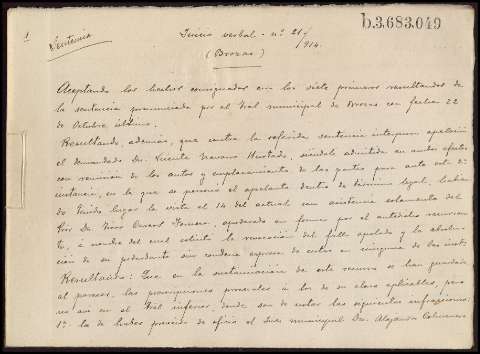 b.3.683.049
1
Sentencia
Juicio verbal - nº 21/
/914.
(Brozas)
Aceptando los hechos consignados con los siete primeros resultandos de
la sentencia pronunciada por el Tral municipal de Brozas con fecha 22
de Octubre último.
Resultando, además, que contra la referida sentencia interpuso apelación
el demandado Dn. Vicente Navarro Hurtado, siéndole admitida en ambos efectos
con remisión de los autos y emplazamiento de las partes para ante esta 2ª
instancia, en la que se personó el apelante dentro de término legal, habien
do tenido lugar la vista el 14 del actual con asistencia solamente del
Pror. Dn. apoderado en forma por el antedicho recurren
te, a nombre del cual solicitó la revocación del fallo apelado y la absolu-
ción de su poderdante sin condena expresa de costas en ninguna de las inst
Resultando: Que en la sustanciación de este recurso se han guardado
al parecer, las prescripciones procesales a los de su clase aplicables, pero
no así en el Tral inferior donde son de notar las siguientes infracciones:
1ª la de haber procedido de oficio el Juez municipal Dn. Alejandro